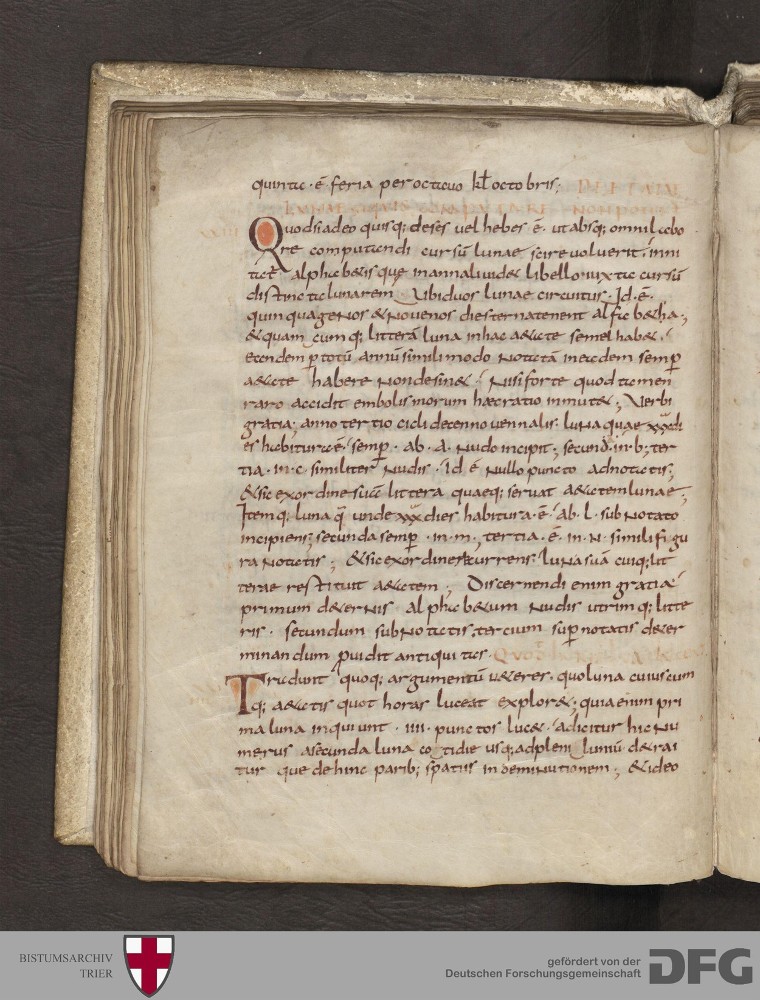 quinta · ē feria per octauo kl̄ octobris; DE ETATAE
LUNAE SI QUIS COMPUTARE NON POTEST
Quodsi adeo quisq; deses uel hebes ē· ut absq; omni labo
re computandi cursū lunae scire uoluerit · inni
tat̄ alphabetis quę in annali uidet libello iuxta cursū
distincta lunarem Ubi duos lunae circuitus · Id · ē ·
quinquagenos & nouenos dies ternatenent alfabetha ·;
& quamcumq; litterā luna in hac aetate semel habet ·
eandem p totū annū simili modo notatā in eadem semp
aetate habere non desinet · nisi forte quod tamen
raro accidit embolismorum haec ratio inmutet ; Verbi
gratia; anno tertio cicli decennouennalis · luna quae xxx di
es habitura ē · semp · ab · a · nudo incipit; secundā · in · b; ter
tia · in · c · similiter nudis · id ē nullo puncto adnotatis;
& sic ex ordine suā littera quaeq; seruat aetatem lunae ;
Itemq; luna q̄ unde xxx dies habitura · ē · ab · l · subnotato
incipiens; secunda semp · in · m ; tertia · ē · in · n · simili figu
ra notatis ; & sic ex ordine recurrens luna suā cuiq; lit
terae restituit aetatem ; Discernendi enim gratia
primum deternis alphabetum nudis utrimq; litte
ris · secundum subnotatis; tercium sup notatis deter
minandum puidit antiquitas · Quo
Tradunt quoq; argumentū ueteres · quo luna cuiuscum
q; aetatis quot horas luceat exploret; quia enim pri
ma luna inquiunt · IIII · punctos lucet · adicitur hic nu
merus a secunda luna cotidie usq; ad plenilunium detrai
tur que dehinc parib; spatiis in deminutionem ; & ideo
BISTUMSARCHIV
TRIER
gefördert von der
Deutschen Forschungsgemeinschaft
DFG